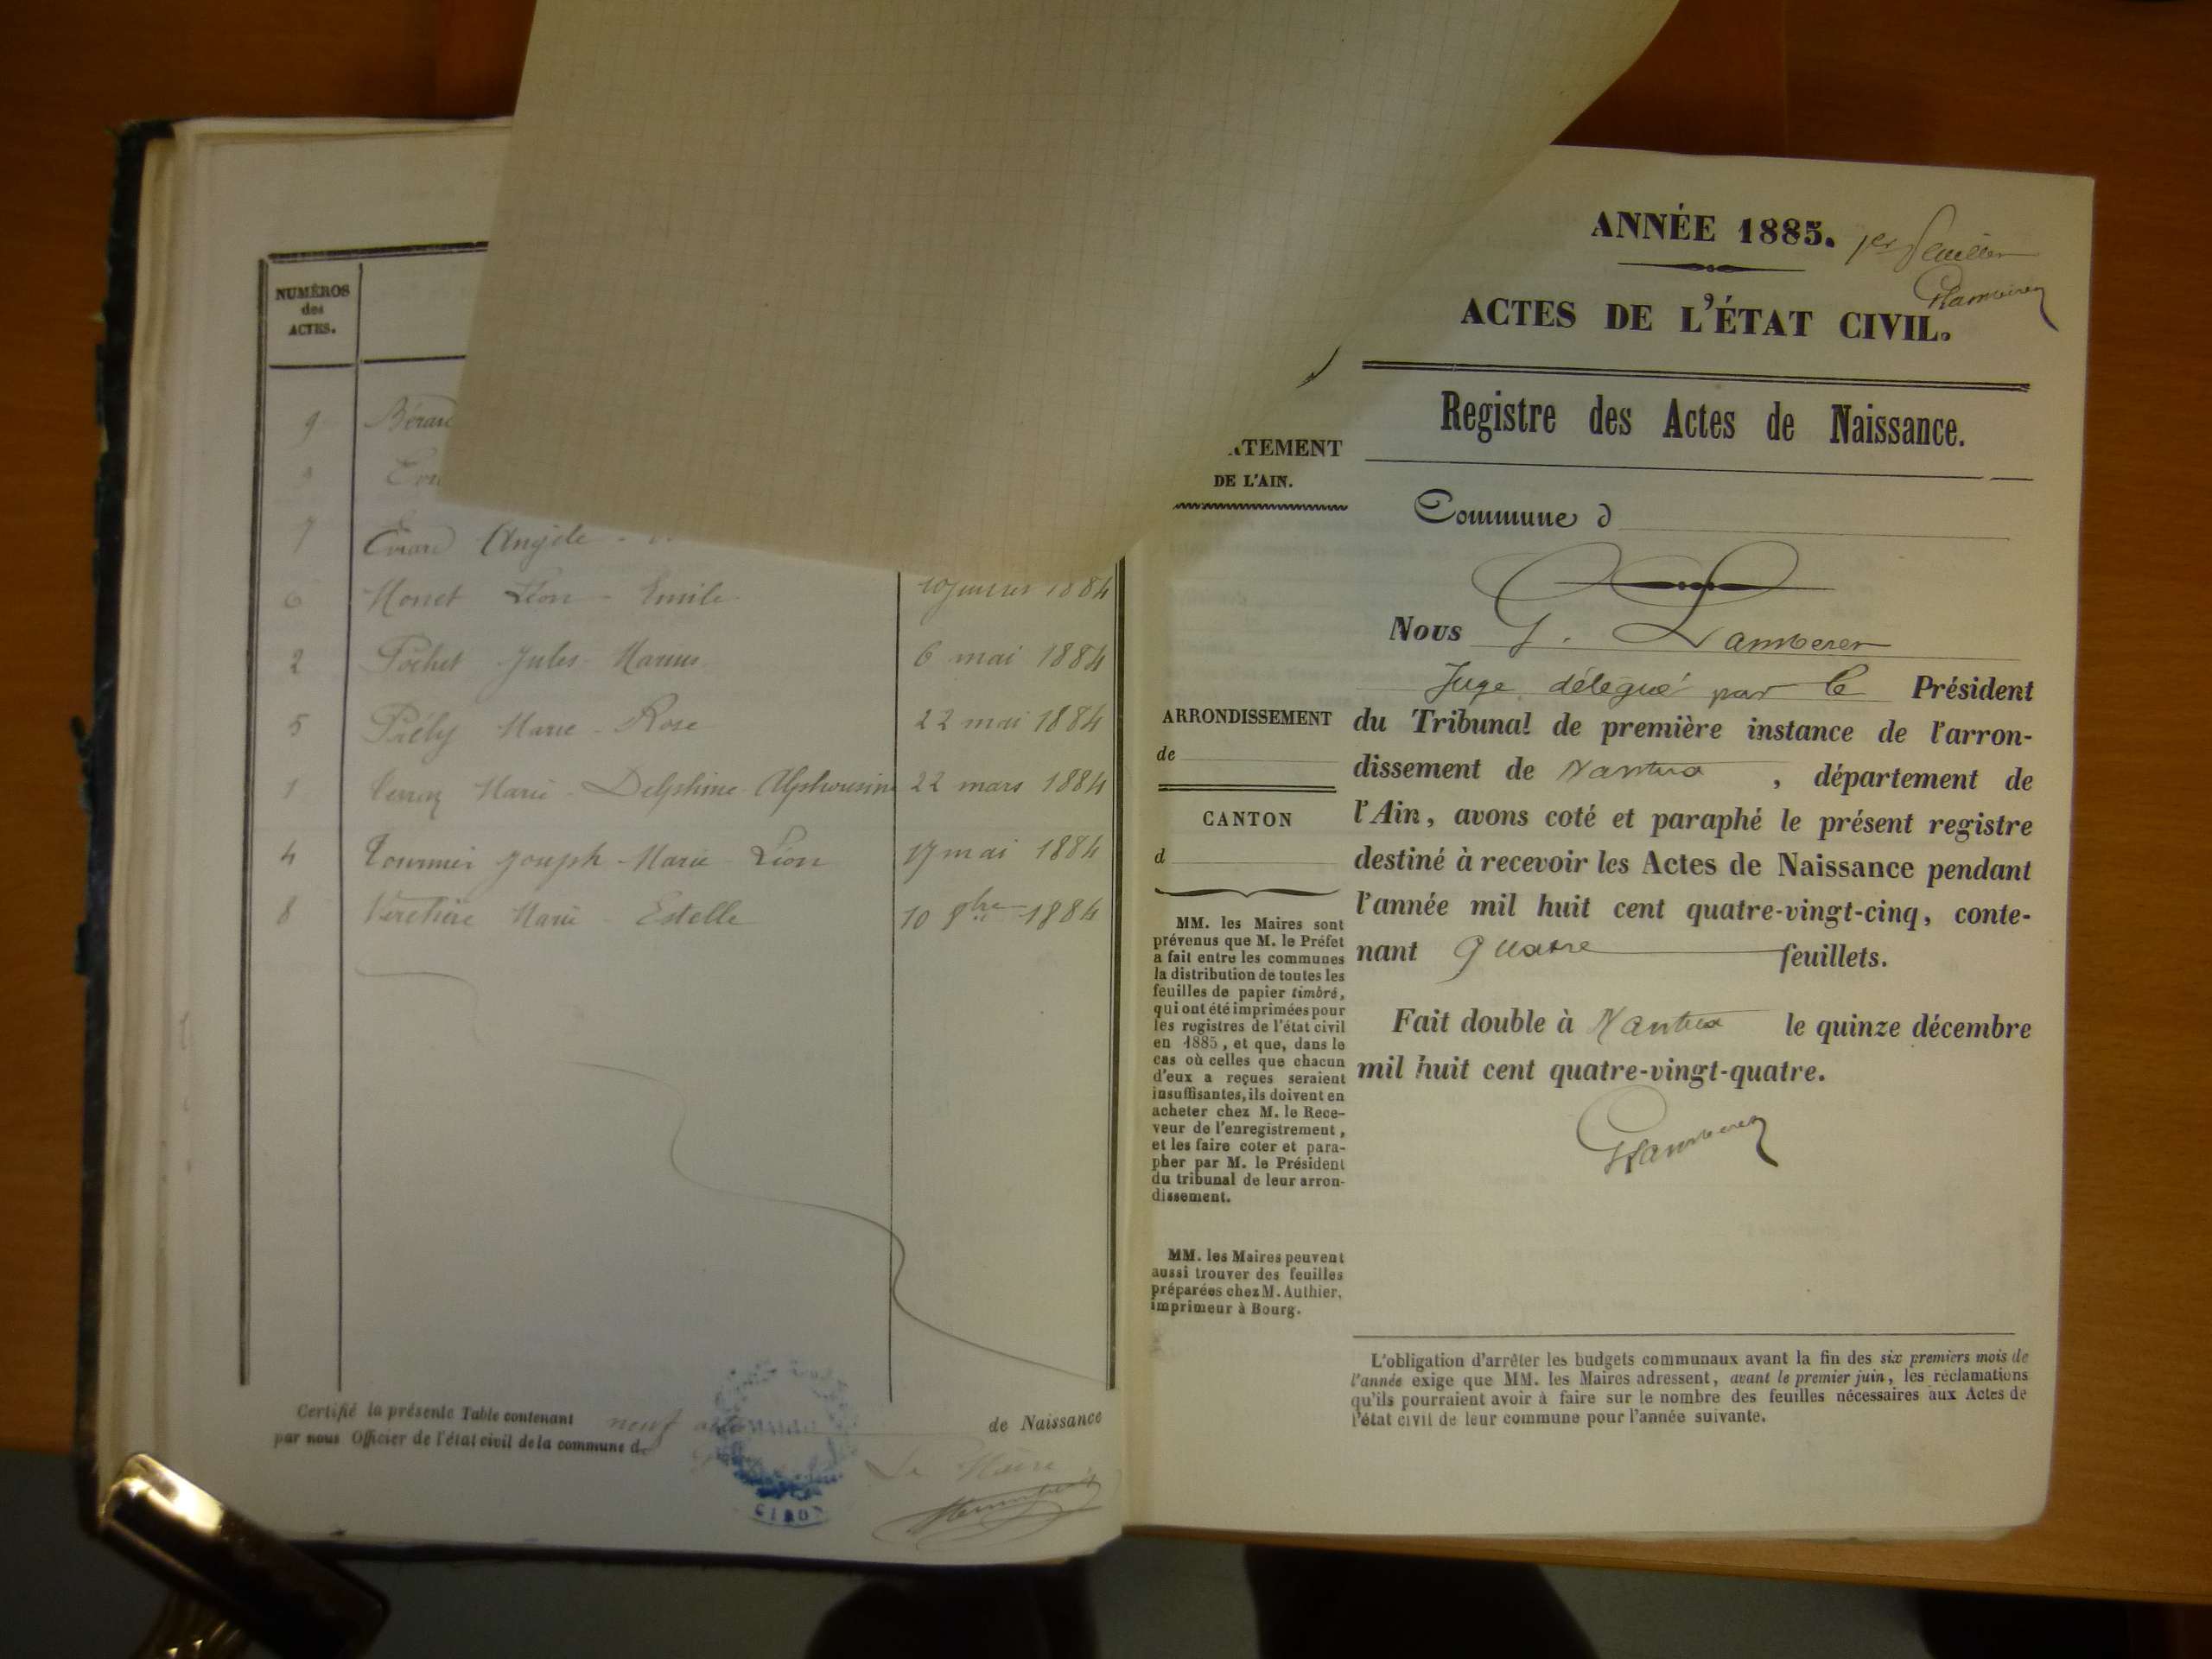 NUMÉROS
des
ACTES.
9
7 Angèle
6 Monet Léon - Emile 1884
2 Pochet Jules - Marius 6 mai 1884
5 Marie - Rose 22 mai 1884
1 Marie - Delphine Alphonsine 22 mars 1884
4 Tournier Joseph - Marie Léon 17 mai 1884
8 Marie - Estelle 10 8bre 1884
Certifié la présente Table contenant neuf actes de Naissance
par nous Officier de l'état civil de la commune de
Le Maire
ANNÉE 1885.
1er feuillet
ACTES DE L'ÉTAT CIVIL.
Registre des Actes de Naissance.
TEMENT
DE L'AIN.
ARRONDISSEMENT
de
CANTON
d
MM. les Maires sont
prévenus que M. le Préfet
a fait entre les communes
la distribution de toutes les
feuilles de papier timbré,
qui ont été imprimées pour
les registres de l'état civil
en 1885, et que, dans le
cas où celles que chacun
d'eux a reçues seraient
insuffisantes, ils doivent en
acheter chez M. le Rece-
veur de l'enregistrement,
et les faire coter et para-
pher par M. le Président
du tribunal de leur arron-
dissement.
MM. les Maires peuvent
aussi trouver des feuilles
préparées chez M. Authier,
imprimeur à Bourg.
Commune d
Nous G.
Juge délégué par le Président
du Tribunal de première instance de l'arron-
dissement de Nantua, département de
l'Ain, avons coté et paraphé le présent registre
destiné à recevoir les Actes de Naissance pendant
l'année mil huit cent quatre-vingt-cinq, conte-
nant quatre feuillets.
Fait double à Nantua le quinze décembre
mil huit cent quatre-vingt-quatre.
L'obligation d'arrêter les budgets communaux avant la fin des six premiers mois de
l'année exige que MM. les Maires adressent, avant le premier juin, les réclamations
qu'ils pourraient avoir à faire sur le nombre des feuilles nécessaires aux Actes de
l'état civil de leur commune pour l'année suivante.